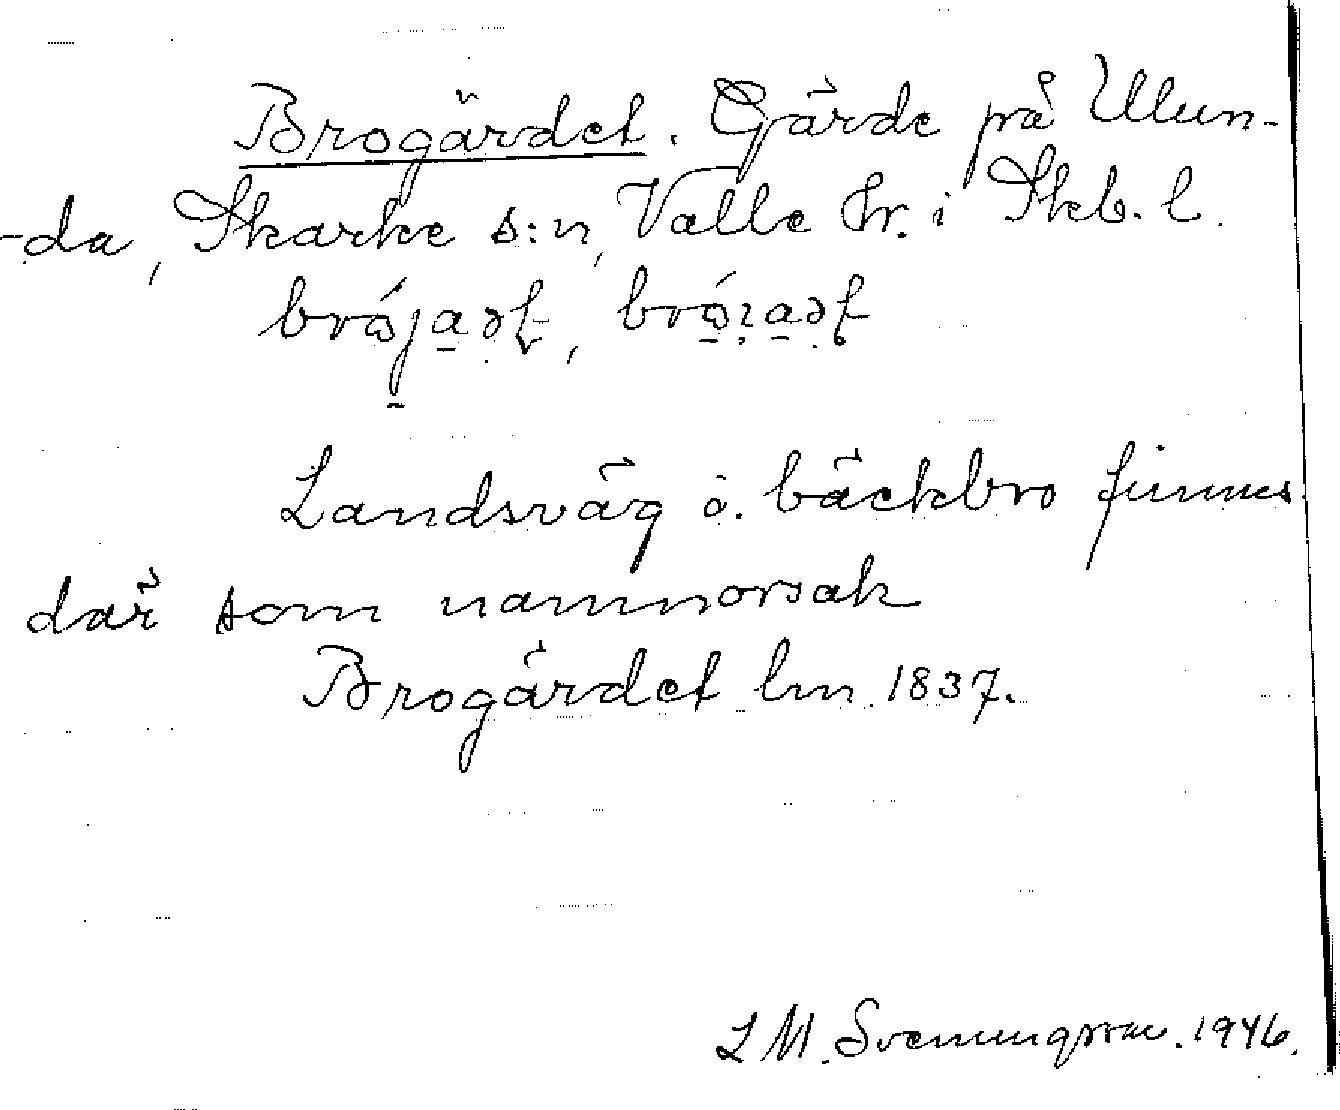 Brogärdet. Gärde på Ulun-
-da, Skarke s:n, Valle hr. i Skb. l.
Landsväg o. bäckbro finnes
där som namnorsak
Brogärdet lm 1837.
L M. Svenungsson. 1946.